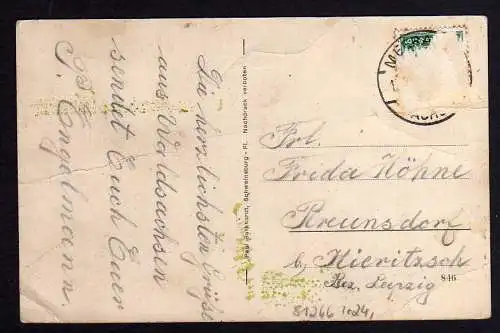 Die herzlichsten Grüße
aus Waldsachsen
sendet Euch Euer
G. Engelmann.
Schweinsburg-Pl. Nachdruck verboten
Frl.
Frida Höhne
Kreunsdorf
b/ Kieritzsch
Bez. Leipzig
846
81266 1924